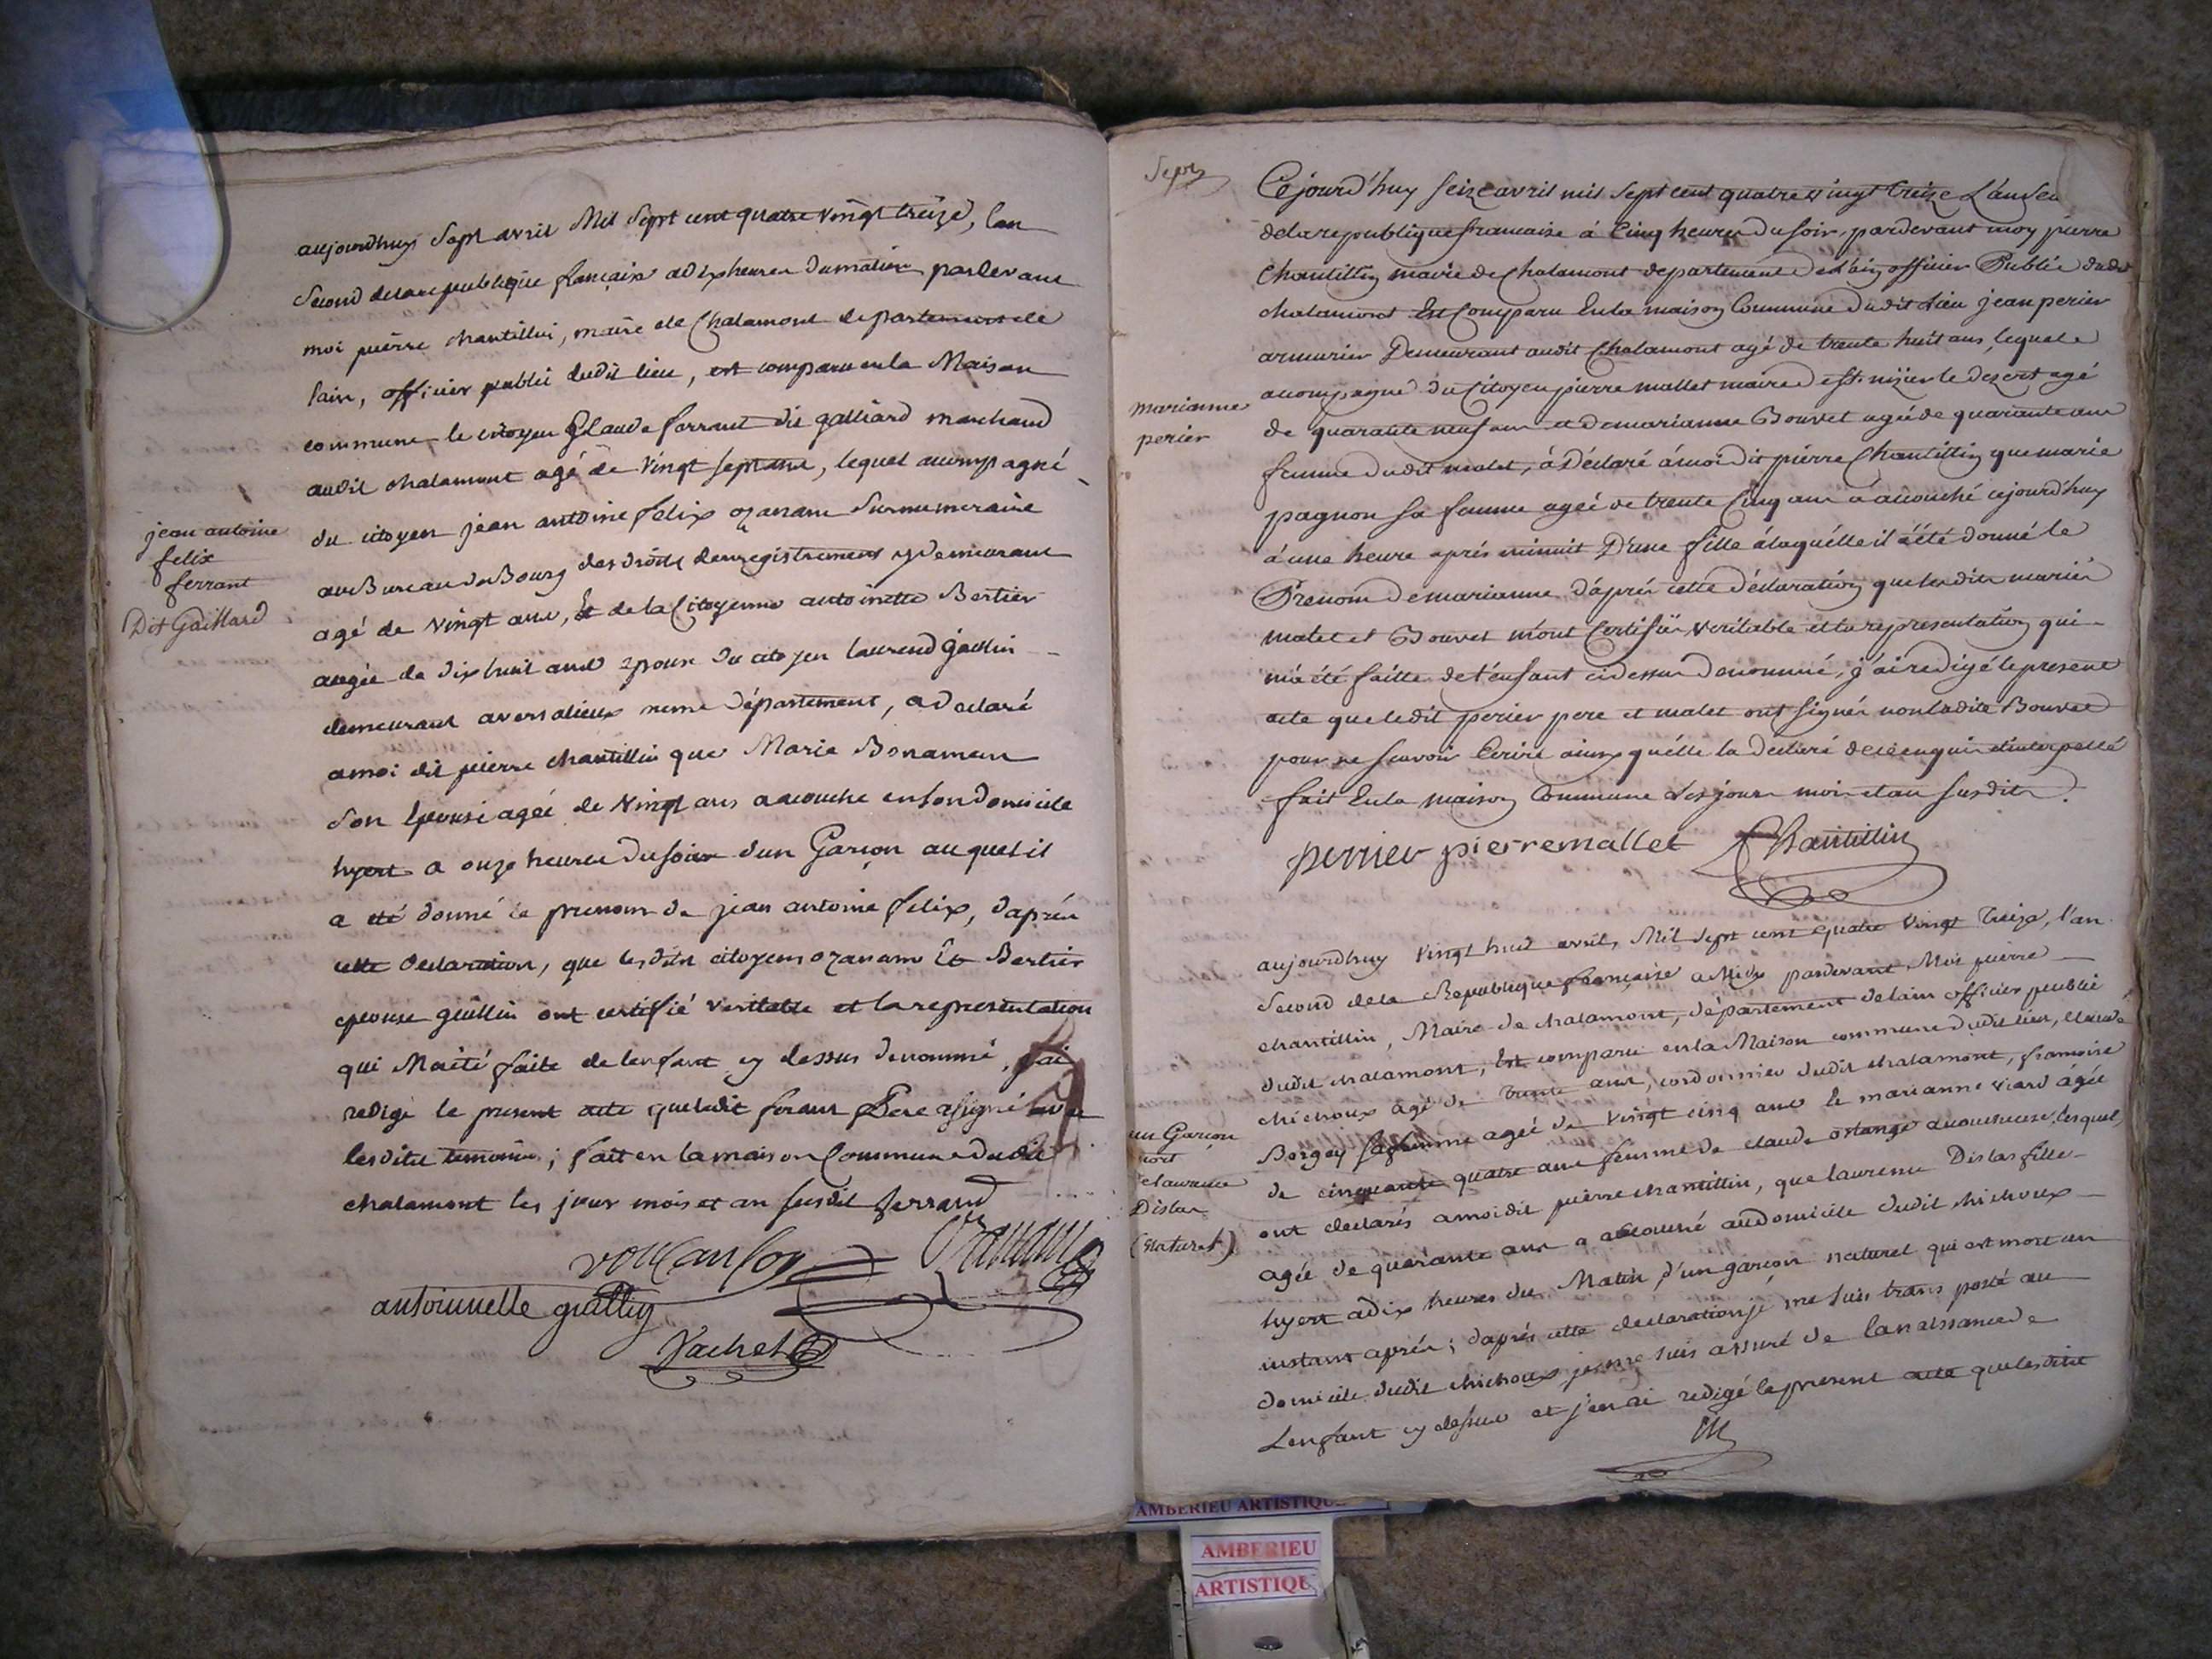 aujourdhuy Sept avril Mil Sept cent quatre vingt treize, lan
Second de la republique française a dix heures du matin pardevant
moi pierre chantillin, maire de Chalamont departement de
lain, officier public dudit lieu, est comparu en la Maison
commune le citoyen Glaude ferrant dit galliard marchand
audit chalamont agé de vingt sept ans, lequel accompagné
jean antoine
felix
ferrant
Dit Gaillard
du citoyen jean antoine felix ozanam Surnumeraire
au Bureau de Bourg des droits denregistrement y demeurant
agé de vingt ans, Et de la Citoyenne antoinette Bertier
aagée de dix huit ans epouse du citoyen laurend guillin
demeurant a versalieux meme département, a declaré
a moi dit pierre chantillin que Marie Bonaman
Son Epouse agée de vingt ans a acouche en son domicile
hyert a onze heures du soir dun Garçon au quel il
a été donné le prenom de jean antoine felix, daprés
cette declaration, que lesdits citoyens ozanam Et Bertier
epouse guillin ont certifié veritable et la representation
qui Ma été faite de lenfant cy dessus denommé, jai
redigé le present acte que ledit ferant Pere a signé avec
lesdits temoins; fait en la maison Commune dudit
chalamont les jour mois et an susdit ferrand
voucanson Ozanam
antoinnette guillin
Vachet
Sept
Cejourd'huy seize avril mil sept cent quatre vingt treize L'an Sen
de la republique francaise à Cinq heures du soir, pardevant moy pierre
Chantillin maire de Chalamont departement de L'ain officier Public dudit
chalamont Est Comparu En la maison Commune dudit Lieu jean perier
armurier Demeurant audit Chalamont agé de trente huit ans, lequel
marianne
perier
acompagné du Citoyen pierre mallet maire de st. nizier le desert agé
de quarante neuf ans et de marianne Bouvet agée de quarante ans
femme dudit malet, à déclaré à moi dit pierre Chantillin que marie
pagnon sa femme agée de trente Cinq ans a acouché cejourd'huy
à une heure aprés minuit D'une fille à laquélle il à été donné le
Prenom de marianne d'aprés cette déclaration que lesdits mariés
malet et Bouvet m'ont Certifiée veritable et la representation qui
m'a été faitte de l'enfant ci dessus denommé, j'ai redigé le present
acte que ledit perier pere et malet ont signés non ladite Bouvet
pour ne sçavoir Ecrire ainsy qu'élle la declaré de ce enquise
fait En la maison Commune les jour mois et an susdits.
perrier pierre mallet Chantillin
aujourdhuy vingt huit avril, Mil Sept cent quatre vingt treize, l'an
Second de la Republique française a Midy pardevant Moi pierre
chantillin, Maire de chalamont, département de lain officier public
dudit chalamont, Est comparu en la Maison commune dudit lieu, claude
chichoux agé de trente ans, cordonnier dudit chalamont, françoise
un Garçon
mort
Dislas
(naturel)
Borgey sa femme agée de vingt cinq ans Et marianne viard agée
de cinquante quatre ans femme de claude acoucheuse, lesquels
ont declarés a moi dit pierre chantillin, que laurence Dislas fille
agée de quarante ans a acouché au domicile dudit chichoux
hyert a dix heures du Matin d'un garçon naturel qui est mort un
instant aprés; daprés cette declaration je me suis transporté au
domicile dudit chichoux, je me suis assuré de la naissance de
Lenfant cy dessus et j'en ai redigé le present acte que lesdits
AMBERIEU ARTISTIQUE
AMBERIEU
ARTISTIQU